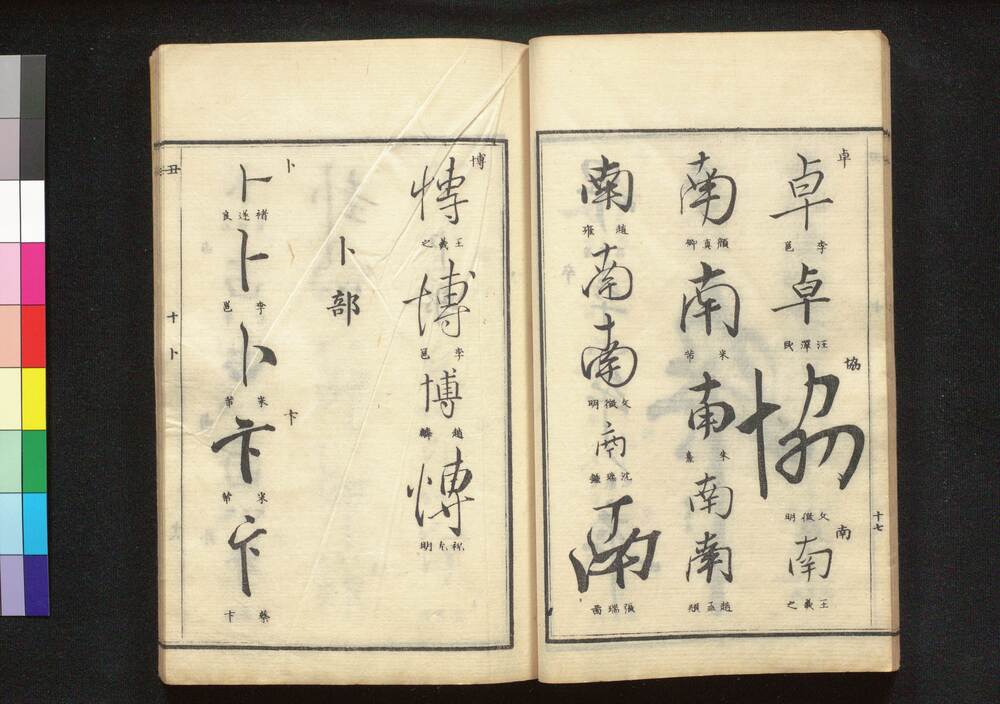 卓
卓
李邕
卓
汪澤民
協
協
文徵明
南
南
王羲之
南
顏真卿
南
米芾
南
朱熹
南
南
趙孟頫
南
趙雍
南
南
文徵明
南
沈
南
張瑞啚
十七
博
博
王羲之
博
李邕
博
趙麟
博
祝允明
卜部
卜
卜
褚遂良
卜
李邕
卜
米芾
卞
卞
米芾
卞
蔡卞
丑
十
卜